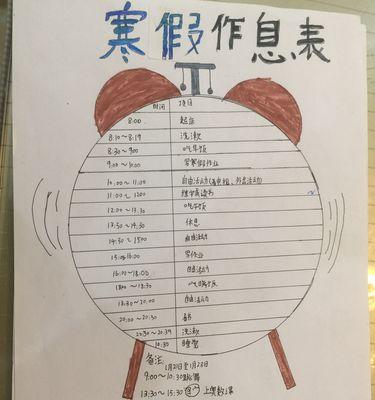 寒假作息表
时间 项目
8:00 起床
8:10~8:19 洗漱
8:30~9:00 吃早饭
9:00~10:00 写寒假作业
10:00~11:00 自由活动
11:00~1200
12:00~13:30 吃午饭
13:30~14:30 休息
14:30~1500 自由活动
15:00~16:00 写作业
16:00~18:00 自由活动
18:00~18:30 吃晚饭
18:30~20:00 自由活动
20:00~20:30 看书
20:30~20:39 洗漱
睡觉
备注:
1月21日至1月28日
9:00~10:30
13:30~15:30 上奥数课